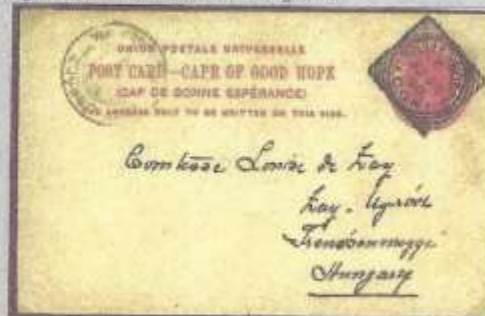 UNION POSTALE UNIVERSELLE
POST CARD—CAPE OF GOOD HOPE
(CAP DE BONNE ESPÉRANCE)
THE ADDRESS ONLY TO BE WRITTEN ON THIS SIDE.
Comtesse Louise de Zay
Zay-Ugrócz
Trencsenmegye
Hungary